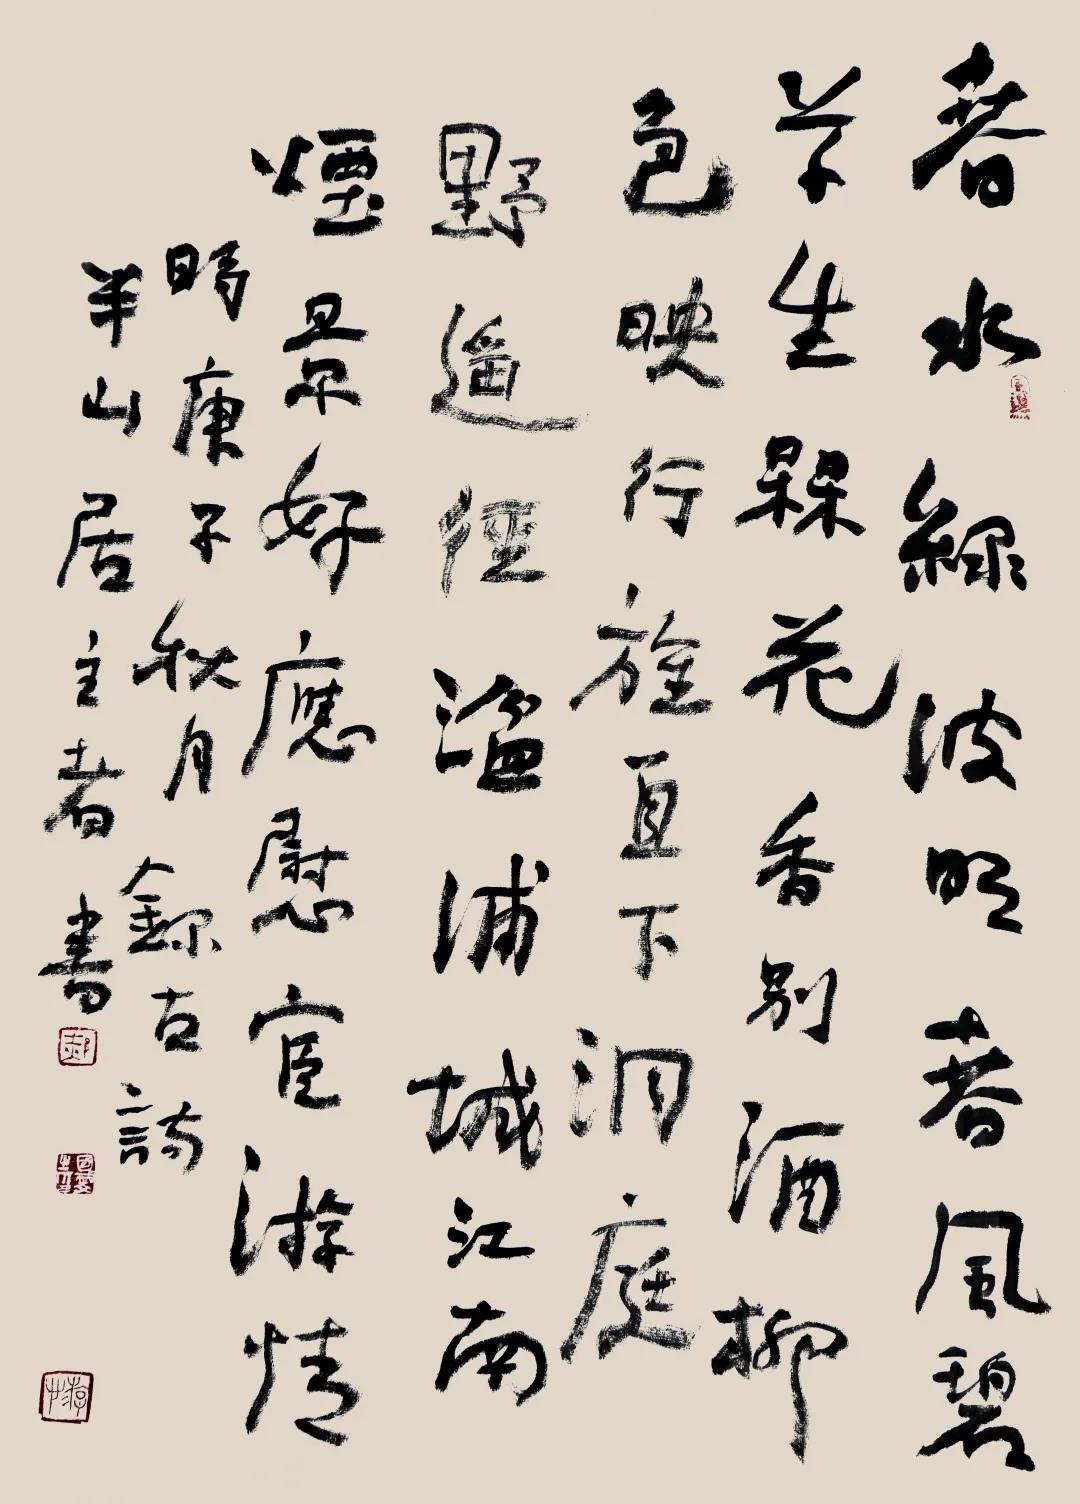 春水綠波明春風碧
草生槑花香別酒柳
色映行旌直下洞庭
野遥徑湓浦城江南
煙景好應慰宦游情
時庚子秋月錄古詩
半山居主者書